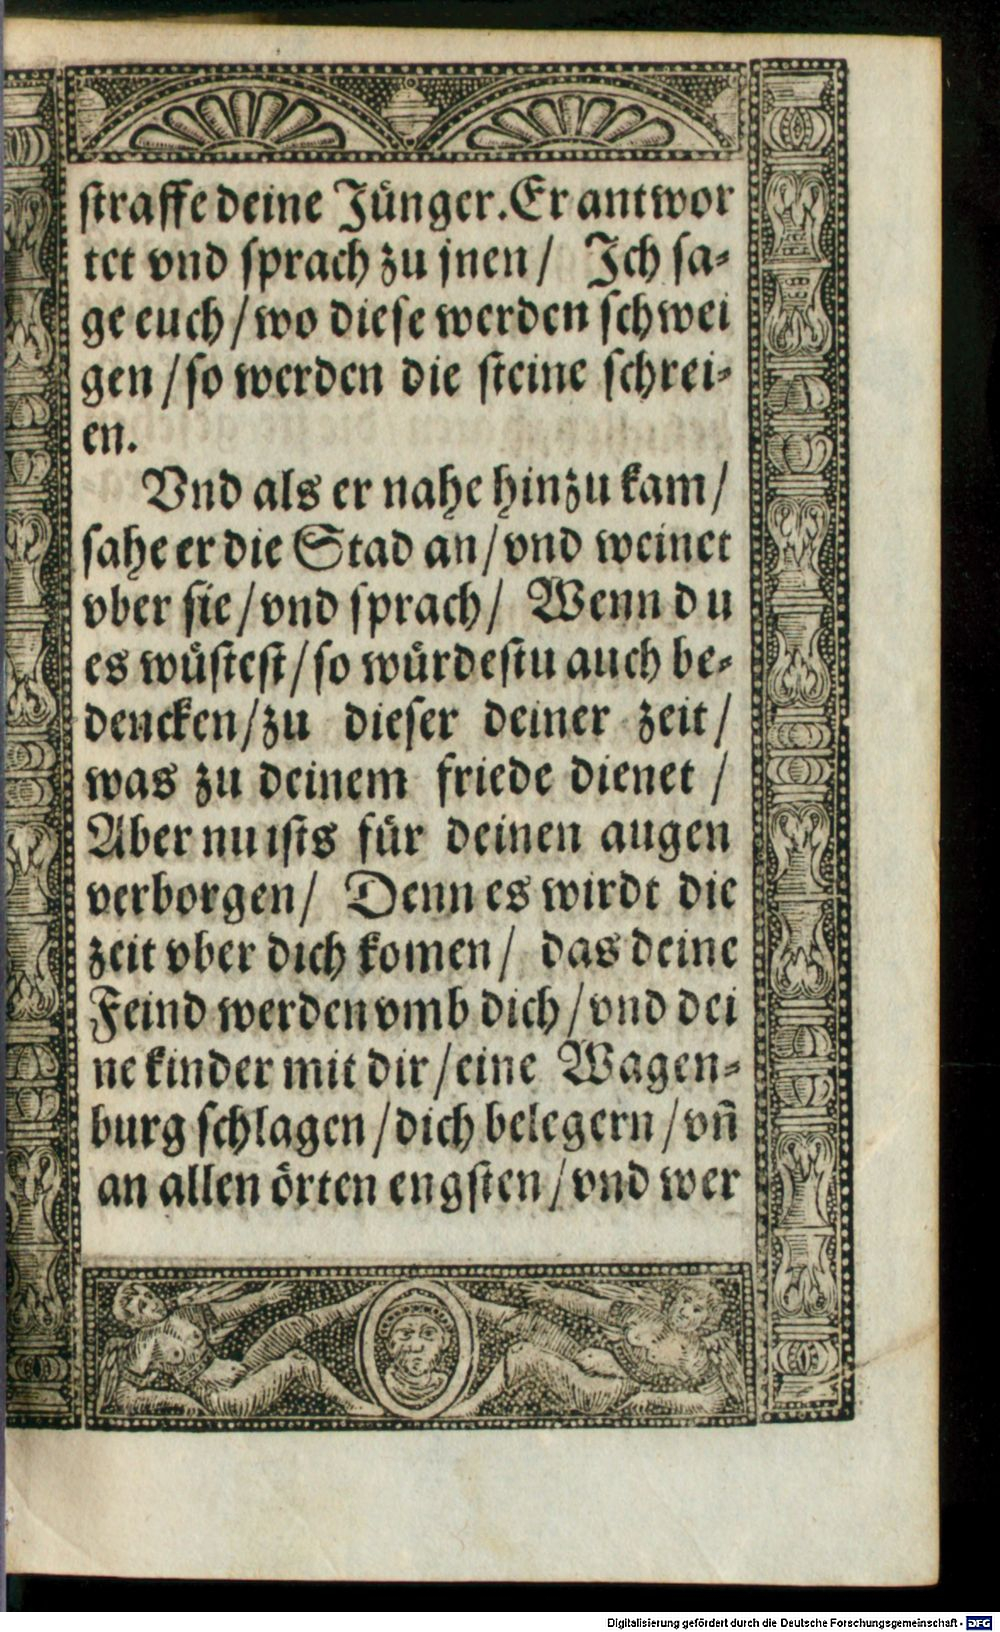 straffe deine Jünger. Er antwor
tet vnd sprach zu jnen / Ich sa⸗
ge euch / wo diese werden schwei
gen / so werden die steine schrei⸗
en.
Vnd als er nahe hinzu kam /
sahe er die Stad an / vnd weinet
vber sie / vnd sprach / Wenn du
es wüstest / so würdestu auch be⸗
dencken / zu dieser deiner zeit /
was zu deinem friede dienet /
Aber nu ists für deinen augen
verborgen / Denn es wirdt die
zeit vber dich komen / das deine
Feind werden vmb dich / vnd dei
ne kinder mit dir / eine Wagen⸗
burg schlagen / dich belegern / vn̄
an allen örten engsten / vnd wer
Digitalisierung gefördert durch die Deutsche Forschungsgemeinschaft - DFG